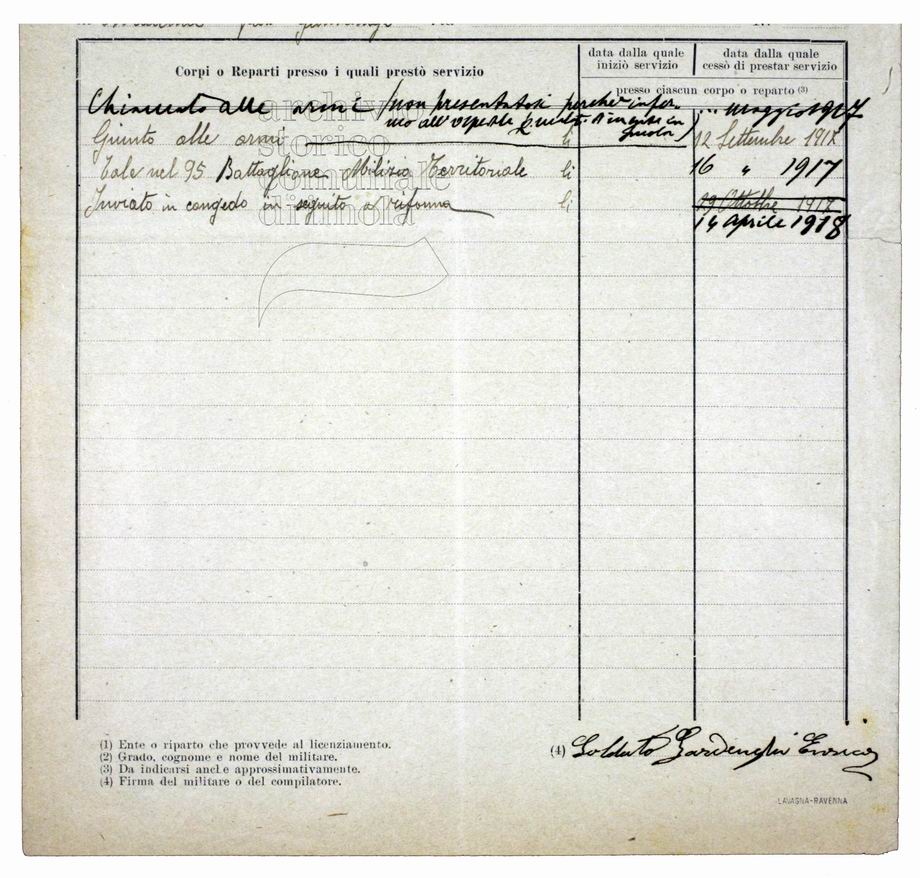 Corpi o Reparti presso i quali prestò servizio
data dalla quale iniziò servizio
data dalla quale cessò di prestar servizio
presso ciascun corpo o reparto (3)
Chiamato alle armi (non presentatosi perchè infer-
mo all' maggio 1917
Giunto alle armi li 12 Settembre 1917
Tale nel 95 Battaglione Milizia Territoriale li 16 " 1917
Inviato in congedo in seguito a riforma li 29 Ottobre 1917
14 Aprile 1918
archivio
storico
comunale
di imola
(1) Ente o riparto che provvede al licenziamento.
(2) Grado, cognome e nome del militare.
(3) Da indicarsi anche approssimativamente.
(4) Firma del militare o del compilatore.
(4) Soldato Gardenghi Enrico
LAVAGNA-RAVENNA